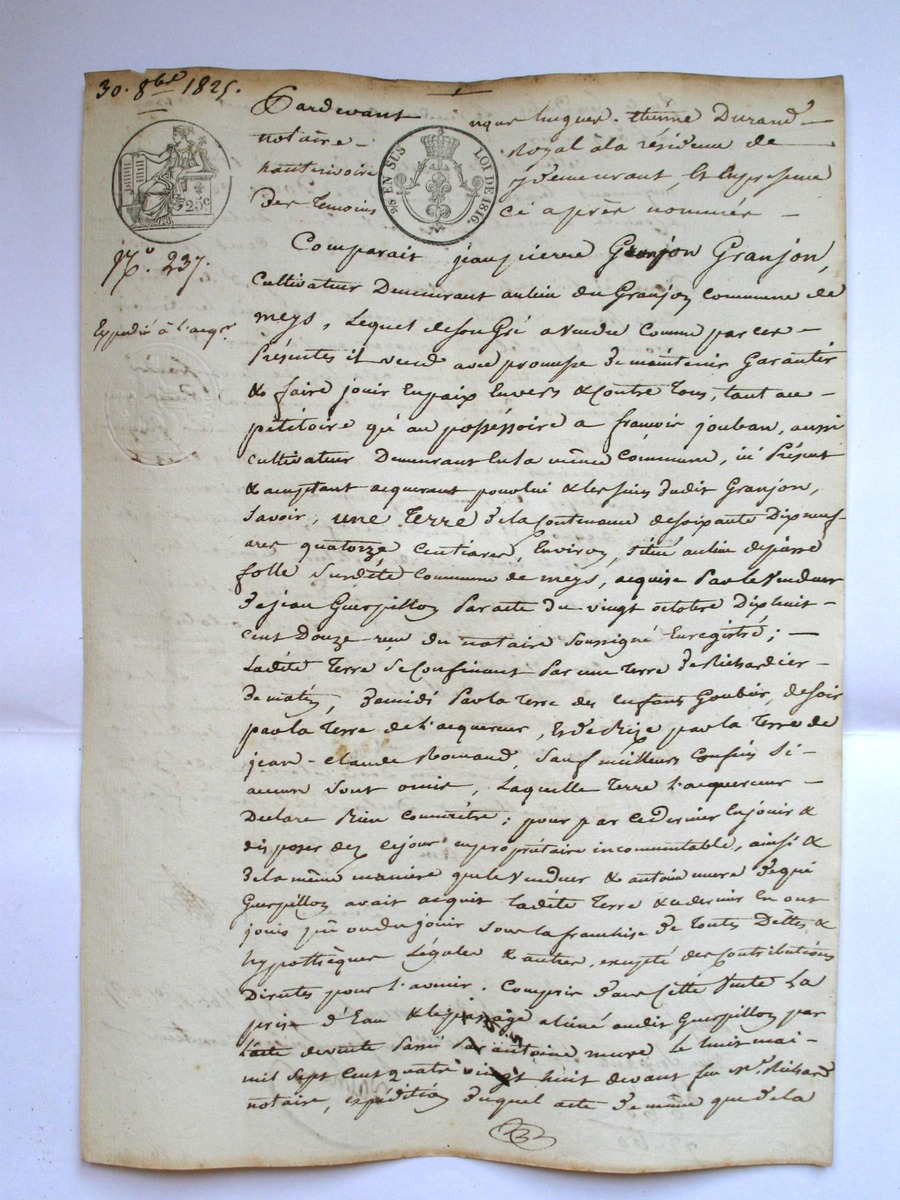 30. 8bre 1825.
Pardevant nous hugues-étiénne Durand
notaire Royal à la résidence de
hauterivoire y demeurant, Et En présence
Des témoins ci après nommés
25c
2/6 EN SUS LOI DE 1816.
No. 237.
Expedié à l'acqr
Comparait jean pierre Granjon Granjon,
Cultivateur Demeurant au lieu du Granjon Commune de
meys, Lequel de son Gré a vendu Comme par ces
Présentes il vend avec promesse de maintenir Garantir
& faire jouir En paix Envers & Contre Tous, tant au
pétitoire qu'au posséssoire a francois jouban, aussi
Cultivateur Demeurant En la même Commune, ici Présent
& acceptant acquerant pour lui & les siens dudit Granjon,
Savoir, une Terre de la Contenance de soixante Dix neuf
ares quatorze Centiares, Environ, située au lieu de passe
folle Surdite Commune de meys, acquise Par le Vendeur
de jean Guerpillon Par acte du vingt octobre Dix huit
cent Douze reçu du notaire Soussigné Enregistré;
Ladite Terre Se Confinant Par une Terre de Richardier
de matin, de midi Par la Terre des enfans Goubier, de soir
par la Terre de l'acquereur, Et de Bize par la Terre de
jean-Claude Romand, Sauf meilleurs Confins Si
aucuns Sont omis, Laquelle Terre l'acquereur
Déclare Bien Connaitre; pour par Ce dernier En jouir &
disposer dez ce jour en propriétaire incommutable, ainsi &
de la même maniere que le Vendeur & antoine mure de qui
Guerpillon avait acquis ladite Terre & ce dernier En ont
joui pu ou du jouir Sous la franchise de toutes Dettes &
hypothèques Légales & autres, excepté des Contributions
Directes pour l'avenir. Compris dans Cette Vente La
prise d'Eau & le passage aliéné audit Guerpillon par
l'acte de vente Passé Par antoine mure le huit mai
mil Sept Cent quatre vingt huit devant feu Mr. Richard
notaire, expédition duquel acte de même que de la